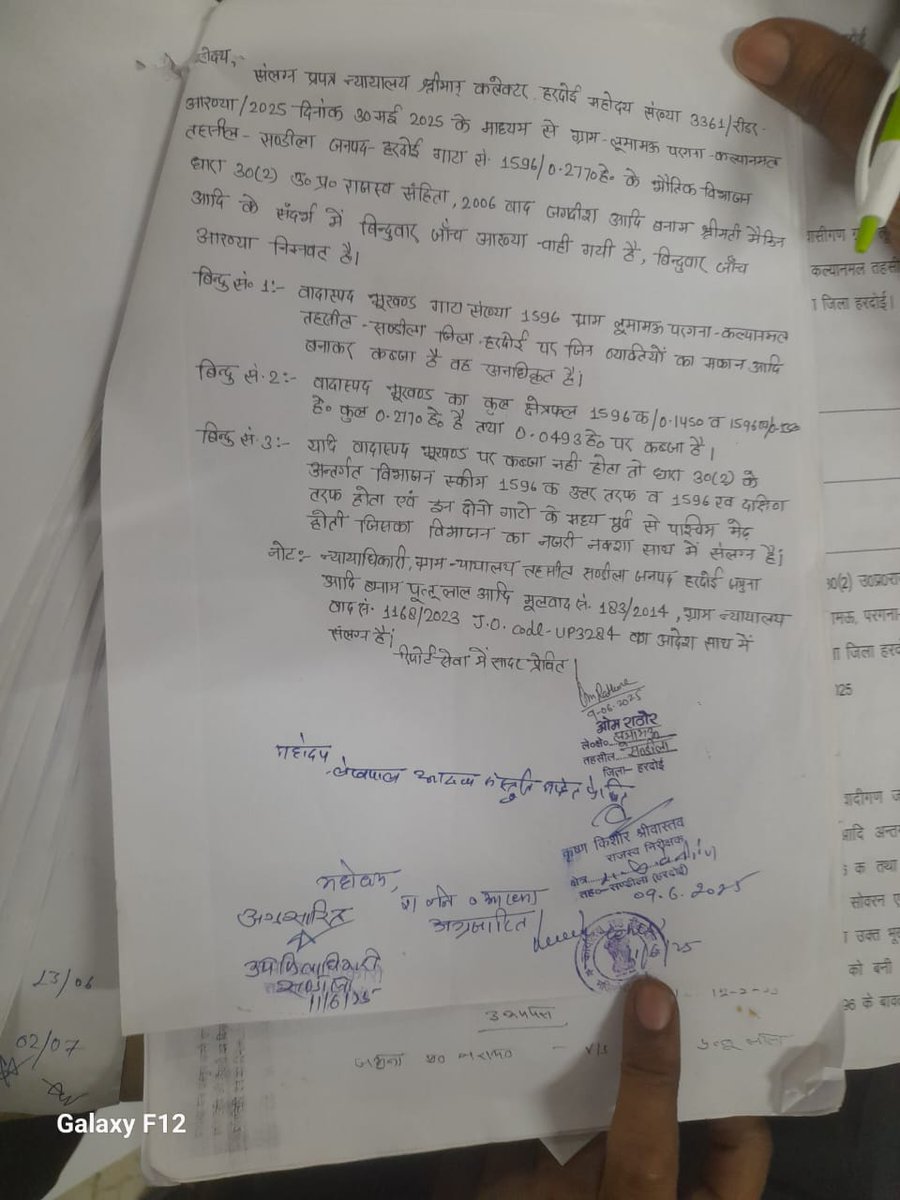 संलग्न प्रपत्र न्यायालय श्रीमान् कलेक्टर हरदोई महोदय संख्या 3361/रीडर-
आख्या/2025 दिनांक 30 मई 2025 के माध्यम से ग्राम-लूमामऊ परगना-कल्यानमल
तहसील-सण्डीला जनपद-हरदोई गाटा सं. 1596/0.2770हे० के भौतिक विभाजन
धारा 30(2) उ० प्र० राजस्व संहिता, 2006 वाद जगदीश आदि बनाम श्रीमती
आदि के संदर्भ में बिन्दुवार जाँच आख्या चाही गयी है, बिन्दुवार जाँच
आख्या निम्नवत है।
बिन्दु सं० 1:- वादास्पद भूखण्ड गाटा संख्या 1596 ग्राम लूमामऊ परगना-कल्यानमल
तहसील-सण्डीला जिला-हरदोई पर जिन व्यक्तियों का मकान आदि
बनाकर कब्जा है वह अनाधिकृत है।
बिन्दु सं. 2:- वादास्पद भूखण्ड का कुल क्षेत्रफल 1596क/0.1450 व
हे० कुल 0.2770हे० है तथा 0.0493हे० पर कब्जा है।
बिन्दु सं. 3:- यदि वादास्पद भूखण्ड पर कब्जा नही होता तो धारा 30(2) के
अन्तर्गत विभाजन स्कीम 1596 क उत्तर तरफ व 1596 ख दक्षिण
तरफ होता एवं इन दोनो गाटो के मध्य पूर्व से पश्चिम मेढ़
होती जिसका विभाजन का नजरी नक्शा साथ में संलग्न है।
नोट:- न्यायाधिकारी, ग्राम-न्यायालय तहसील सण्डीला जनपद हरदोई जमुना
आदि बनाम पुत्तूलाल आदि मूलवाद सं. 183/2014, ग्राम न्यायालय
वाद सं. 1168/2023 J.O. Code-UP3284 का आदेश साथ में
संलग्न है।
रिपोर्ट सेवा में सादर प्रेषित।
9-06-2025
ओम राठौर
ले०क्षे० लूमामऊ
तहसील सण्डीला
जिला-हरदोई
महोदय
लेखपाल
कृष्ण किशोर श्रीवास्तव
राजस्व निरीक्षक
क्षेत्र
तह०-सण्डीला (हरदोई)
09.6.2025
महोदय,
अग्रसारित
अग्रसारित
उपजिलाधिकारी
सण्डीला
11/6/25
11/6/25
13/06
02/07
कल्यानमल तहसी
जिला हरदोई।
30(2) उ०प्र०रा
मऊ, परगना-
जिला हरदो
025
आदि अन्त
क तथा
सोवरन ए
उक्त भू
को बनी
96 के बाव
Galaxy F12